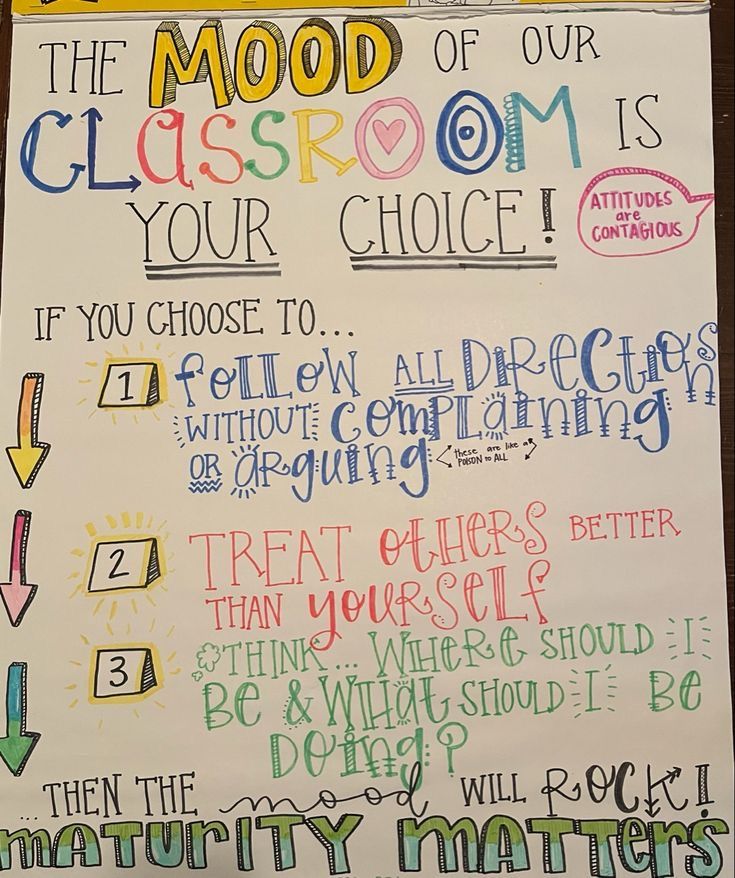 THE MOOD OF OUR
CLASSROOM IS
YOUR CHOICE!
ATTITUDES
are
CONTAGIOUS
IF YOU CHOOSE TO...
1 FOLLOW ALL DIRECTIONS
WITHOUT COMPLAINING
OR ARGUING
these are like a
POISON to ALL
2 TREAT OTHERS BETTER
THAN YOURSELF
3 THINK... WHERE SHOULD I
BE & WHAT SHOULD I BE
DOING?
...THEN THE mood WILL ROCK!
MATURITY MATTERS